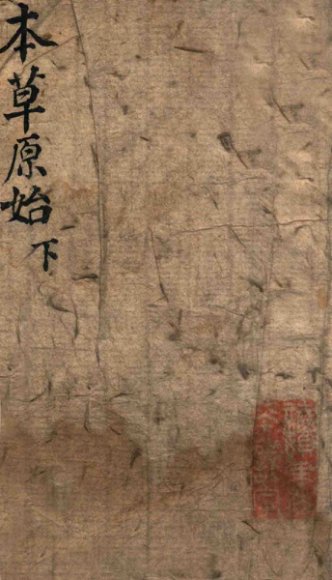 本草原始
下